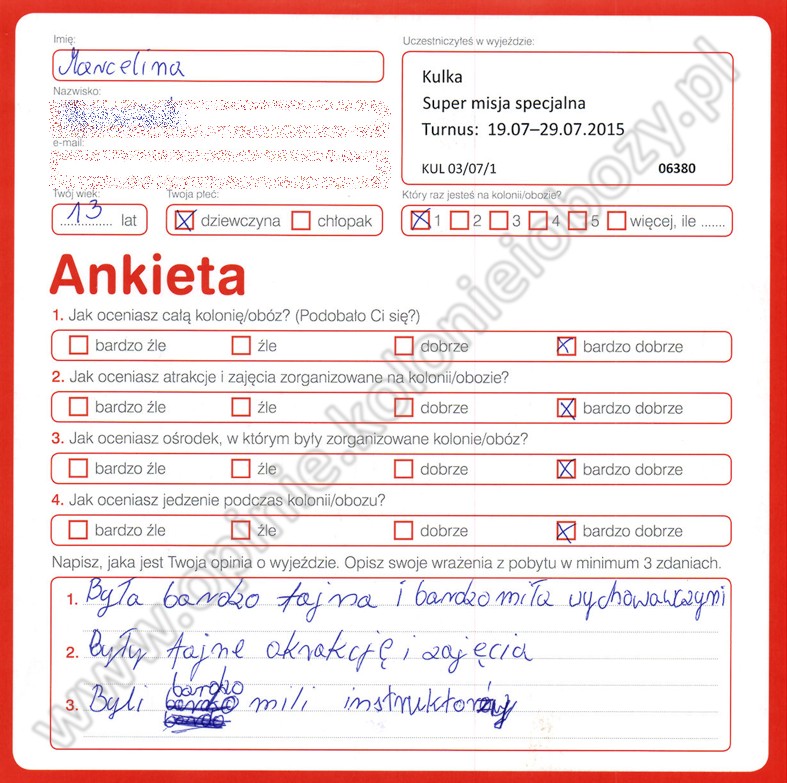 Imię:
Marcelina
Uczestniczyłeś w wyjeździe:
Kulka
Super misja specjalna
Turnus: 19.07–29.07.2015
KUL 03/07/1 06380
Nazwisko:
e-mail:
Twój wiek:
13 lat
Twoja płeć:
dziewczyna chłopak
Który raz jesteś na kolonii/obozie?
1 2 3 4 5 więcej, ile .......
Ankieta
1. Jak oceniasz całą kolonię/obóz? (Podobało Ci się?)
bardzo źle źle dobrze bardzo dobrze
2. Jak oceniasz atrakcje i zajęcia zorganizowane na kolonii/obozie?
bardzo źle źle dobrze bardzo dobrze
3. Jak oceniasz ośrodek, w którym były zorganizowane kolonie/obóz?
bardzo źle źle dobrze bardzo dobrze
4. Jak oceniasz jedzenie podczas kolonii/obozu?
bardzo źle źle dobrze bardzo dobrze
Napisz, jaka jest Twoja opinia o wyjeździe. Opisz swoje wrażenia z pobytu w minimum 3 zdaniach.
1. Była bardzo fajna i bardzo miła wychowawczyni
2. Były fajne atrakcję i zajęcia
3. Byli bardzo mili instruktorzy
www.opinie.kolonieiobozy.pl